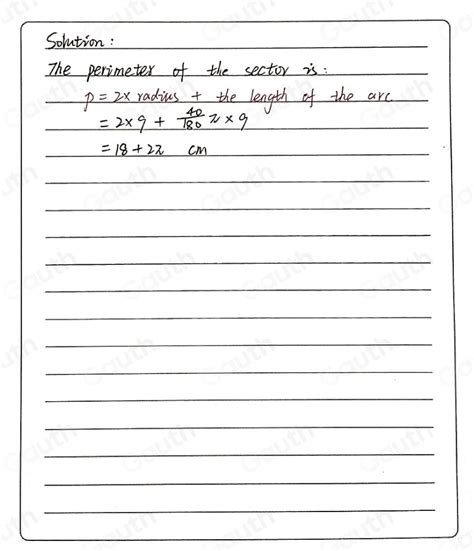 Solution:
The perimeter of the sector is:
P = 2× radius + the length of the arc
= 2×9 + 40/180 π × 9
= 18 + 2π cm